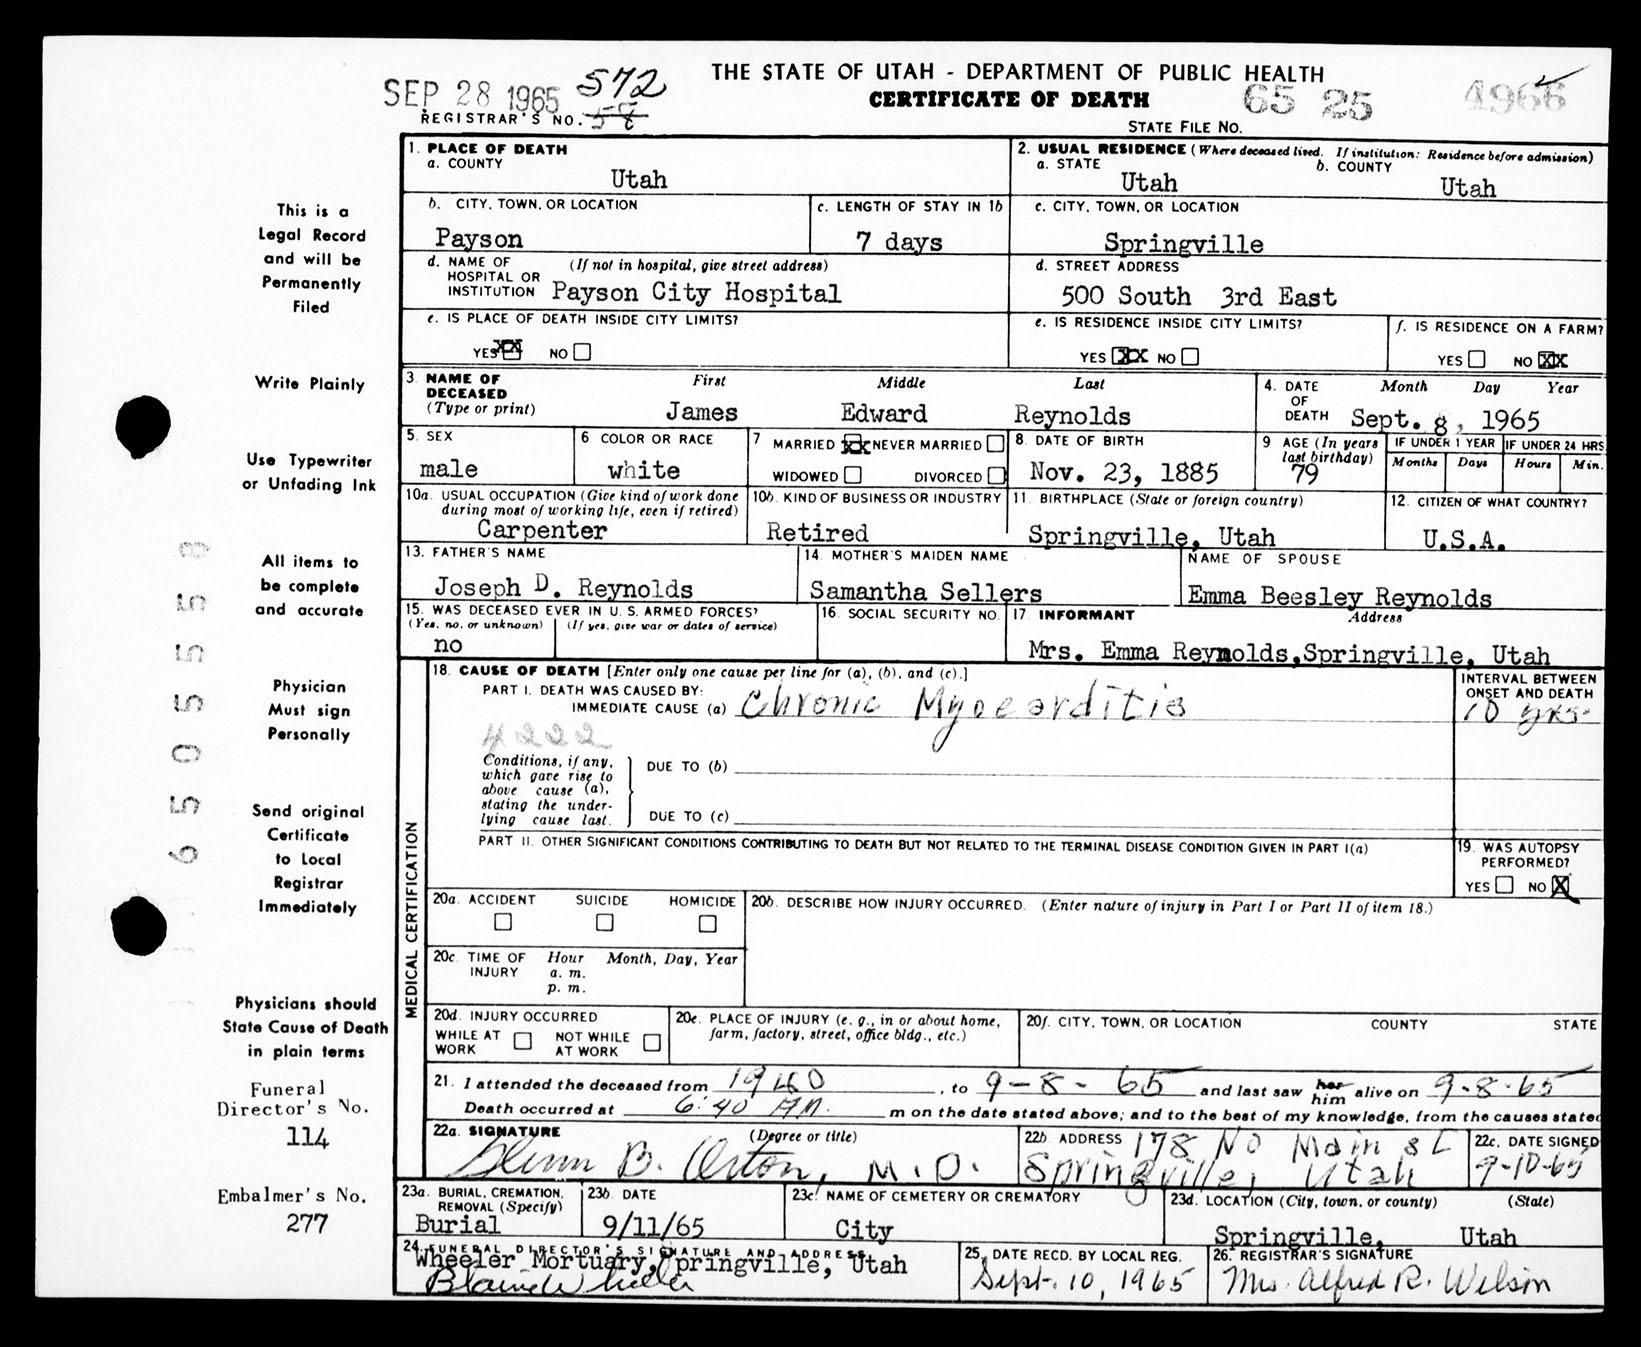 THE STATE OF UTAH - DEPARTMENT OF PUBLIC HEALTH
CERTIFICATE OF DEATH
SEP 28 1965 572
REGISTRAR'S NO. 58
65 25 4966
STATE FILE NO.
This is a
Legal Record
and will be
Permanently
Filed
Write Plainly
Use Typewriter
or Unfading Ink
All items to
be complete
and accurate
Physician
Must sign
Personally
Send original
Certificate
to Local
Registrar
Immediately
Physicians should
State Cause of Death
in plain terms
Funeral
Director's No.
114
Embalmer's No.
277
1. PLACE OF DEATH
a. COUNTY
Utah
2. USUAL RESIDENCE (Where deceased lived. If institution: Residence before admission)
a. STATE b. COUNTY
Utah Utah
b. CITY, TOWN, OR LOCATION
Payson
c. LENGTH OF STAY IN 1b
7 days
c. CITY, TOWN, OR LOCATION
Springville
d. NAME OF (If not in hospital, give street address)
HOSPITAL OR
INSTITUTION Payson City Hospital
d. STREET ADDRESS
500 South 3rd East
e. IS PLACE OF DEATH INSIDE CITY LIMITS?
YES XX NO
e. IS RESIDENCE INSIDE CITY LIMITS?
YES XX NO
f. IS RESIDENCE ON A FARM?
YES NO XX
3. NAME OF First Middle Last
DECEASED
(Type or print) James Edward Reynolds
4. DATE Month Day Year
OF
DEATH Sept. 8, 1965
5. SEX
male
6 COLOR OR RACE
white
7 MARRIED XX NEVER MARRIED
WIDOWED DIVORCED
8. DATE OF BIRTH
Nov. 23, 1885
9 AGE (In years
last birthday)
79
IF UNDER 1 YEAR IF UNDER 24 HRS
Months Days Hours Min.
10a. USUAL OCCUPATION (Give kind of work done
during most of working life, even if retired)
Carpenter
10b. KIND OF BUSINESS OR INDUSTRY
Retired
11. BIRTHPLACE (State or foreign country)
Springville, Utah
12. CITIZEN OF WHAT COUNTRY?
U.S.A.
13. FATHER'S NAME
Joseph D. Reynolds
14. MOTHER'S MAIDEN NAME
Samantha Sellers
NAME OF SPOUSE
Emma Beesley Reynolds
15. WAS DECEASED EVER IN U. S. ARMED FORCES?
(Yes, no, or unknown) (If yes, give war or dates of service)
no
16. SOCIAL SECURITY NO.
17. INFORMANT Address
Mrs. Emma Reynolds,Springville, Utah
18. CAUSE OF DEATH [Enter only one cause per line for (a), (b), and (c).]
PART I. DEATH WAS CAUSED BY:
IMMEDIATE CAUSE (a) Chronic Myocarditis
INTERVAL BETWEEN
ONSET AND DEATH
10 yrs.
4222
Conditions, if any,
which gave rise to
above cause (a),
stating the under-
lying cause last.
DUE TO (b)
DUE TO (c)
PART II. OTHER SIGNIFICANT CONDITIONS CONTRIBUTING TO DEATH BUT NOT RELATED TO THE TERMINAL DISEASE CONDITION GIVEN IN PART I(a)
19. WAS AUTOPSY
PERFORMED?
YES NO X
MEDICAL CERTIFICATION
20a. ACCIDENT SUICIDE HOMICIDE
20b. DESCRIBE HOW INJURY OCCURRED. (Enter nature of injury in Part I or Part II of item 18.)
20c. TIME OF Hour Month, Day, Year
INJURY a. m.
p. m.
20d. INJURY OCCURRED
WHILE AT NOT WHILE
WORK AT WORK
20e. PLACE OF INJURY (e. g., in or about home,
farm, factory, street, office bldg., etc.)
20f. CITY, TOWN, OR LOCATION COUNTY STATE
21. I attended the deceased from 1940, to 9-8-65 and last saw her him alive on 9-8-65
Death occurred at 6:40 AM. m on the date stated above; and to the best of my knowledge, from the causes stated
22a. SIGNATURE (Degree or title)
Glenn B. Orton, M.D.
22b. ADDRESS 178 No Main St
Springville, Utah
22c. DATE SIGNED
9-10-65
23a. BURIAL, CREMATION,
REMOVAL (Specify)
Burial
23b. DATE
9/11/65
23c. NAME OF CEMETERY OR CREMATORY
City
23d. LOCATION (City, town, or county) (State)
Springville, Utah
24. FUNERAL DIRECTOR'S SIGNATURE AND ADDRESS
Wheeler Mortuary, Springville, Utah
Blaine W heeler
25. DATE RECD. BY LOCAL REG.
Sept. 10, 1965
26. REGISTRAR'S SIGNATURE
Mrs. Alfred R. Wilson